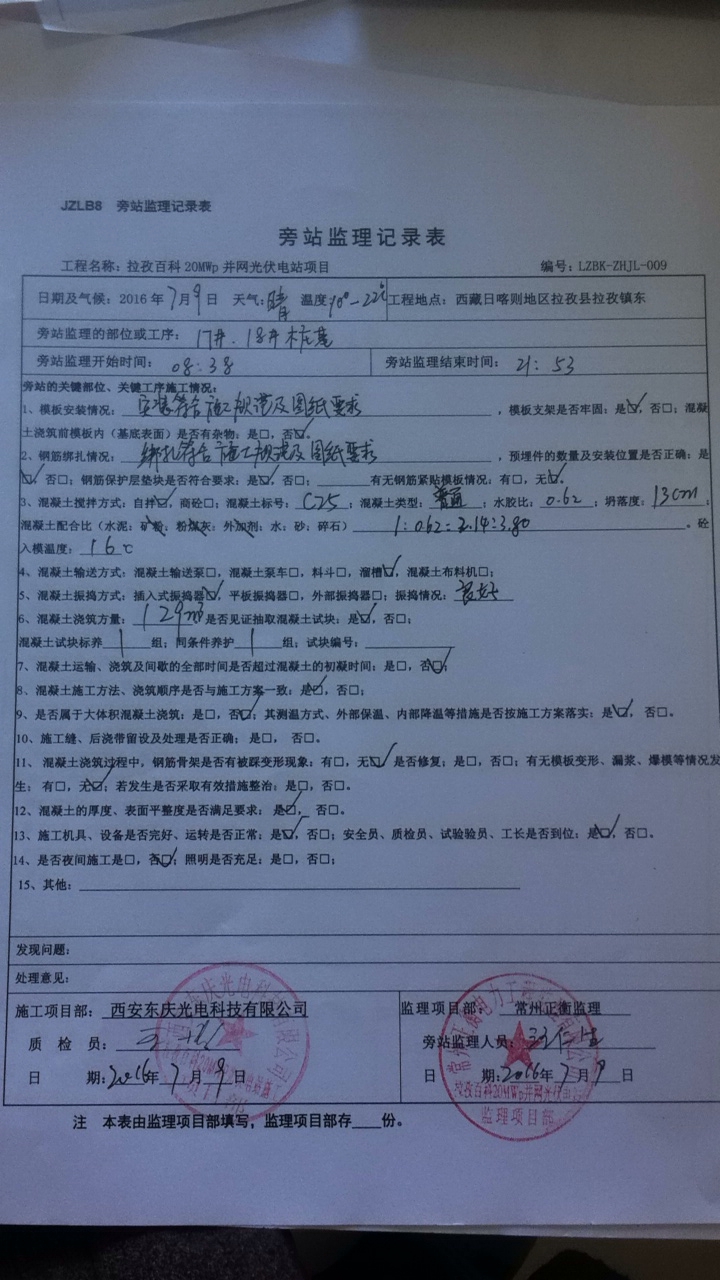 JZLB8 旁站监理记录表
旁站监理记录表
工程名称：拉孜百科 20MWp 并网光伏电站项目 编号：LZBK-ZHJL-009
日期及气候：2016 年 7 月 9 日 天气：晴 温度 10°-22℃ 工程地点：西藏日喀则地区拉孜县拉孜镇东
旁站监理的部位或工序：17#、18#桩基
旁站监理开始时间：08：38 旁站监理结束时间：21：53
旁站的关键部位、关键工序施工情况：
1、模板安装情况：安装符合施工规范及图纸要求，模板支架是否牢固：是☑，否□；混凝
土浇筑前模板内（基底表面）是否有杂物：是□，否☑。
2、钢筋绑扎情况：绑扎符合施工规范及图纸要求，预埋件的数量及安装位置是否正确：是
☑，否□；钢筋保护层垫块是否符合要求：是☑，否□；有无钢筋紧贴模板情况：有□，无☑。
3、混凝土搅拌方式：自拌☑，商砼□；混凝土标号：C25；混凝土类型：普通；水胶比：0.62；坍落度：13cm，
混凝土配合比（水泥：矿粉：粉煤灰：外加剂：水：砂：碎石） 1：0.62：2.14：3.80。砼
入模温度：16℃
4、混凝土输送方式：混凝土输送泵□，混凝土泵车□，料斗□，溜槽☑，混凝土布料机□；
5、混凝土振捣方式：插入式振捣器☑，平板振捣器□，外部振捣器□；振捣情况：良好
6、混凝土浇筑方量：129m³ 是否见证抽取混凝土试块：是☑，否□；
混凝土试块标养 1 组；同条件养护 1 组；试块编号：
7、混凝土运输、浇筑及间歇的全部时间是否超过混凝土的初凝时间：是□，否☑；
8、混凝土施工方法、浇筑顺序是否与施工方案一致：是☑，否□；
9、是否属于大体积混凝土浇筑：是□，否☑；其测温方式、外部保温、内部降温等措施是否按施工方案落实：是☑，否□。
10、施工缝、后浇带留设及处理是否正确：是□，否□。
11、混凝土浇筑过程中，钢筋骨架是否有被踩变形现象：有□，无☑ 是否修复：是□，否□；有无模板变形、漏浆、爆模等情况发
生：有□，无☑；若发生是否采取有效措施整治：是□，否□。
12、混凝土的厚度、表面平整度是否满足要求：是☑，否□。
13、施工机具、设备是否完好、运转是否正常：是☑，否□；安全员、质检员、试验验员、工长是否到位：是☑，否□。
14、是否夜间施工是□，否☑；照明是否充足：是□，否□；
15、其他：
发现问题：
处理意见：
施工项目部：西安东庆光电科技有限公司 监理项目部：常州正衡监理
质 检 员： 旁站监理人员：
日 期：2016年 7 月 9 日 日 期：2016年 7 月 9 日
拉孜百科20MWp并网光伏电站
监理项目部
注 本表由监理项目部填写，监理项目部存____份。